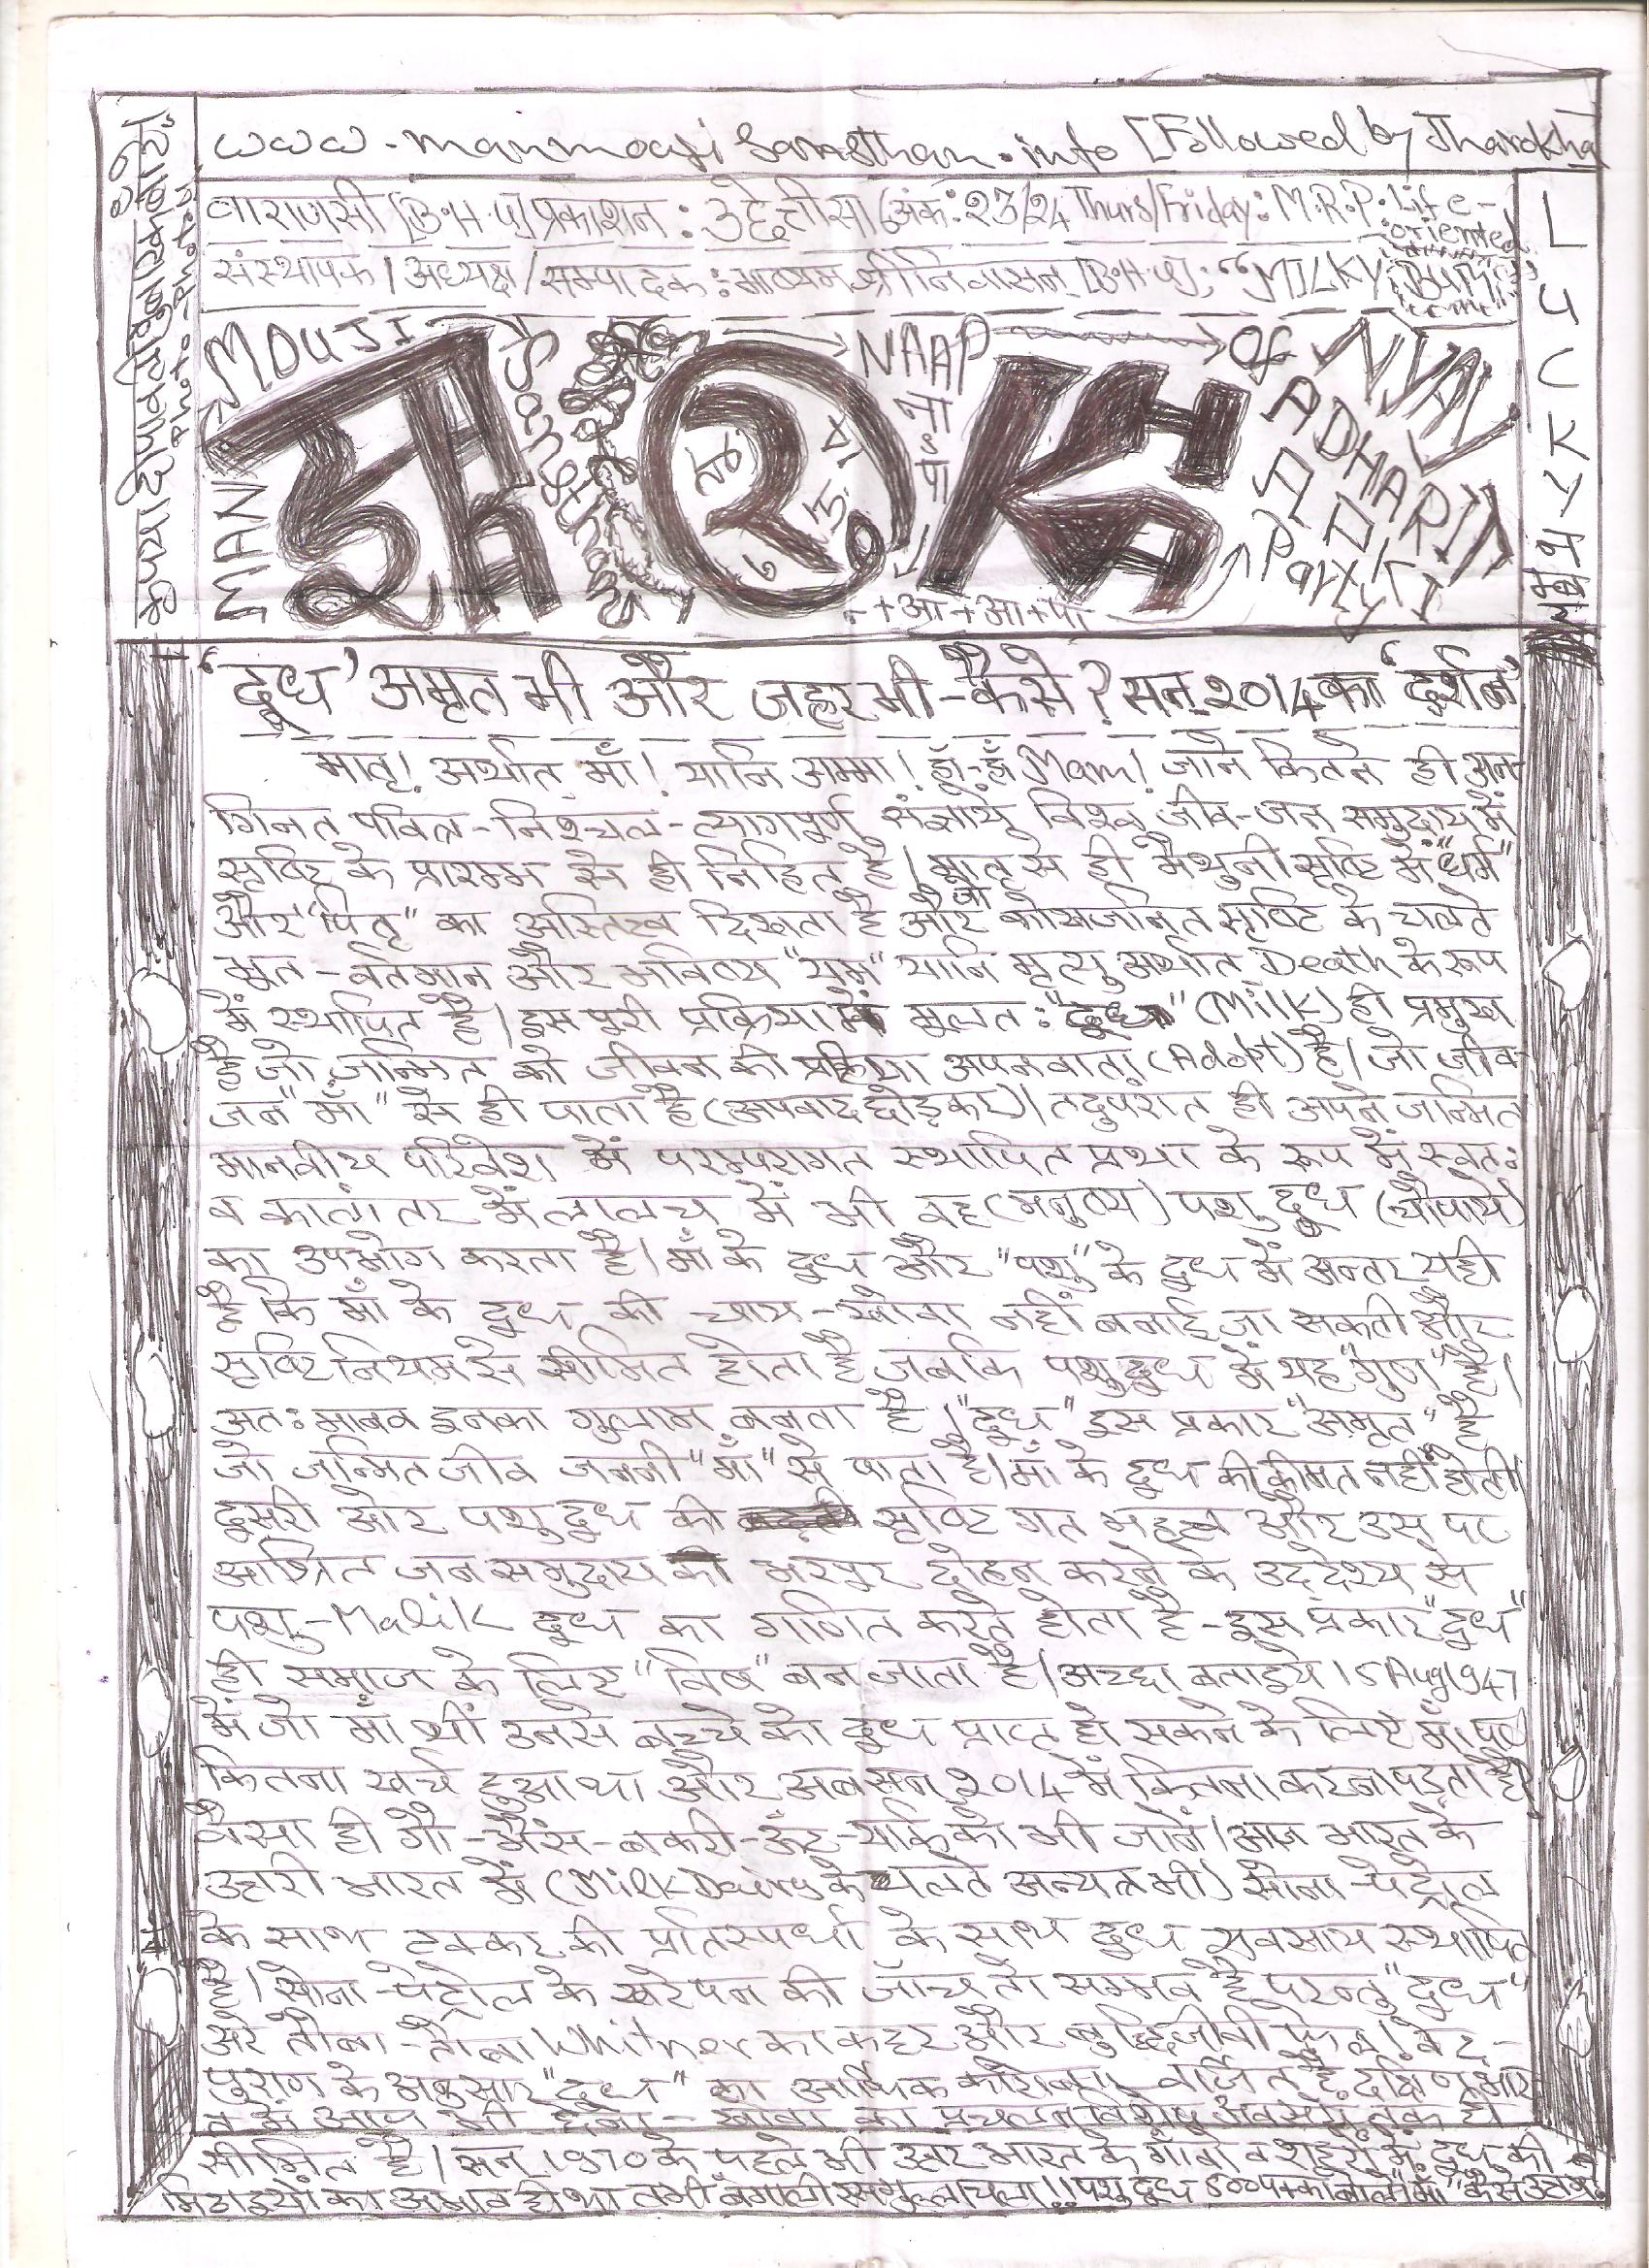 www.manmouji Sansthan.info [Followed by Jharokha
वाराणसी [B.H.U] प्रकाशन: उद्देतीसा (अंक: 23/24 Thurs/Friday: M.R.P. Life-oriented
संस्थापक / अध्यक्ष / सम्पादक: श्रीनिवासन् [B.H.U]; "MILKY
कृपया दीपावली
Photo - Photo
LUCKY
MAN MOUJI
NAAP of NYAY
ADHARIT
Party
+आ+आ+पा
'दूध' अमृत भी और जहर भी-कैसे? सन् २०१४ का 'दर्शन'
मातृ! अर्थात् माँ! यानि अम्मा! हाँ-हाँ Mam! जाने कितने ही अन-
गिनत पवित्र-निश्चल-त्यागपूर्ण संज्ञायें विश्व जीव-जन समुदाय में
सृष्टि के प्रारम्भ से ही निहित है। मातृ से ही मैथुनी सृष्टि में "धर्म"
और "पितृ" का अस्तित्व दिखता है और जो कोखजनित सृष्टि के चलते
भूत-वर्तमान और भविष्य "यम" यानि मृत्यु अर्थात् Death के रूप
में स्थापित है। इस पुरी प्रक्रिया में मूलत: "दूध" (Milk) ही प्रमुख
है जो जन्मित को जीवन की प्रक्रिया अपनवाता (Adopt) है। जो जीव-
जन "माँ" से ही पाता है (अपवाद छोड़कर)। तदुपरांत ही अपने जन्मित
मानवीय परिवेश में परम्परागत स्थापित प्रथा के रूप में स्वत:
व कालांतर में लालच में भी वह (मनुष्य) पशु दूध (चौपाये)
का उपभोग करता है। माँ के दूध और "पशु" के दूध में अन्तर यही
है कि माँ के दूध की चाय-खोवा नहीं बनाई जा सकती और
सृष्टि नियम से सीमित होता है जबकि पशु दूध में यह "गुण" है।
अत: मानव इनका गुलाम बनता है। "दूध" इस प्रकार "अमृत" है
जो जन्मित जीव जननी "माँ" से पाता है। माँ के दूध की कीमत नहीं होती
दुसरी ओर पशु दूध की सृष्टि गत महत्व और उस पर
आश्रित जन समुदाय की भरपुर दोहन करने के उद्देश्य से
पशु-Malik दूध का गणित करते होता है-इस प्रकार "दूध"
ही समाज के लिए "विष" बन जाता है। अच्छा बताइये 15 Aug 1947
में जो माँ थीं उनसे बच्चे को दूध प्राप्त हो सकने के लिए माँ पर
कितना खर्च हुआ था और अब सन् २०१४ में कितना करना पड़ता है।
वैसा ही गौ-भैंस-बकरी-ऊँट-याक को भी जानें। आज भारत के
उत्तरी भारत में (Milk-Dairy के चलते अन्यत्र भी) सोना-पेट्रोल
के साथ टक्कर की प्रतिस्पर्धा के साथ दूध व्यवसाय स्थापित
है। सोना-पेट्रोल के खरेपन की जाँच तो सम्भव है परन्तु "दूध"
अरे तौबा-तौबा Whitner का कहर और बुद्धिजीवी फेल! वेद-
पुराण के अनुसार "दूध" का आर्थिक वर्जित है, दक्षिण भार-
त में आज भी छेना-खोवा का प्रचलन विशेष अवसरों तक ही
सीमित है। सन् 1970 के पहले भी उत्तर भारत के गाँवों व शहरों में दूध की
मिठाइयों का अभाव ही था तभी बंगाली रसगुल्ला चला!! पशु दूध